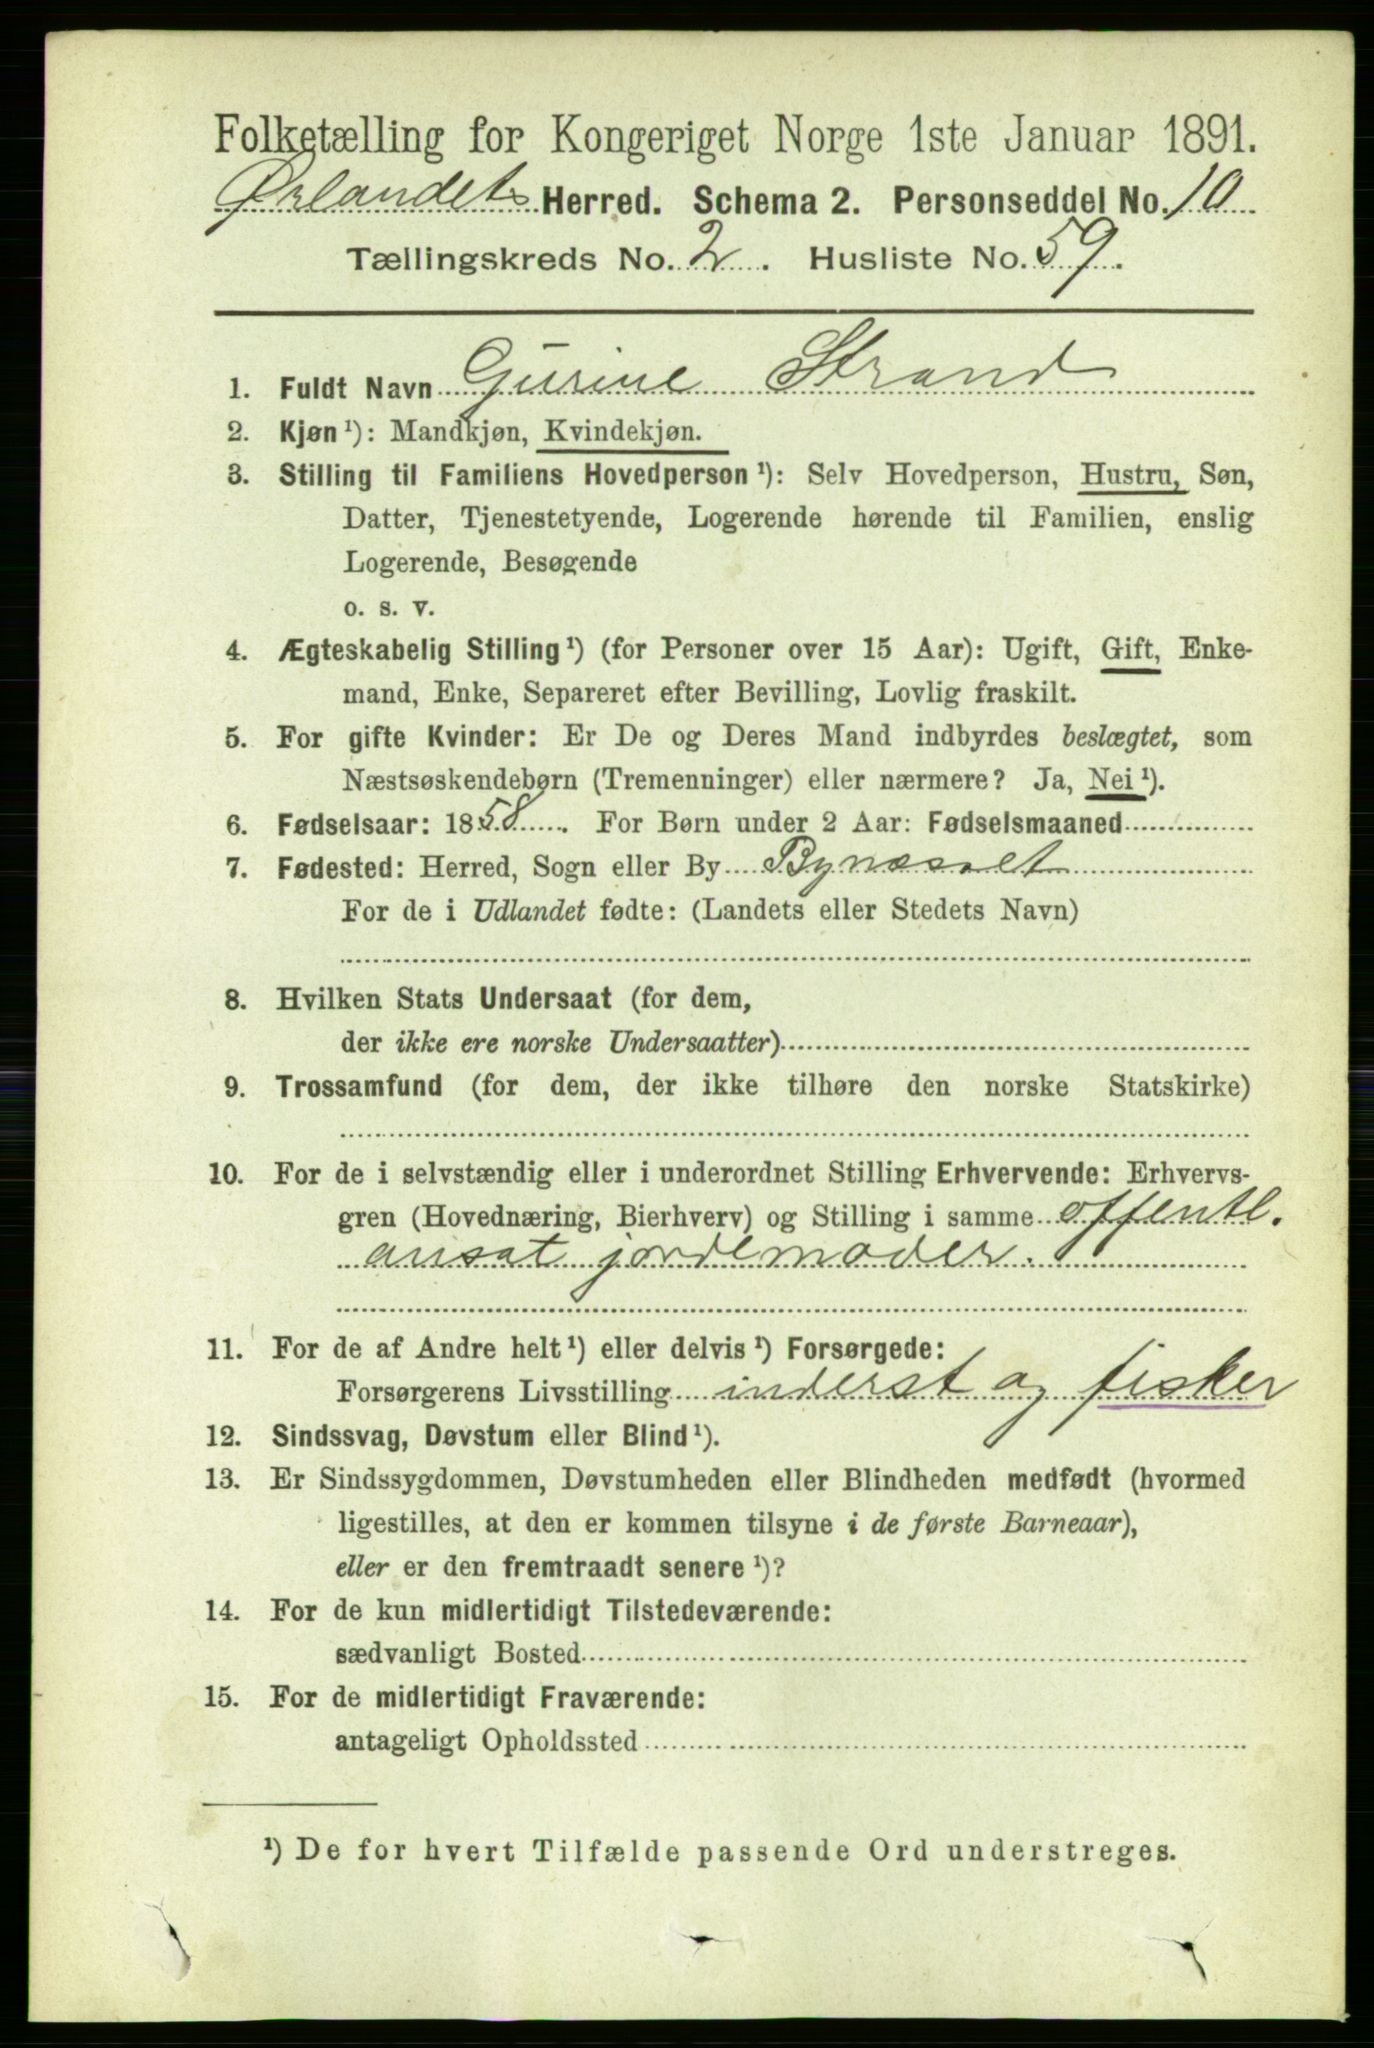 Folketælling for Kongeriget Norge 1ste Januar 1891.
Ørlandets Herred. Schema 2. Personseddel No. 10
Tællingskreds No. 2. Husliste No. 59.
1. Fuldt Navn Gurine Strand
2. Kjøn ¹): Mandkjøn, Kvindekjøn.
3. Stilling til Familiens Hovedperson ¹): Selv Hovedperson, Hustru, Søn,
Datter, Tjenestetyende, Logerende hørende til Familien, enslig
Logerende, Besøgende
o. s. v.
4. Ægteskabelig Stilling ¹) (for Personer over 15 Aar): Ugift, Gift, Enke-
mand, Enke, Separeret efter Bevilling, Lovlig fraskilt.
5. For gifte Kvinder: Er De og Deres Mand indbyrdes beslægtet, som
Næstsøskendebørn (Tremenninger) eller nærmere? Ja, Nei ¹).
6. Fødselsaar: 1858. For Børn under 2 Aar: Fødselsmaaned
7. Fødested: Herred, Sogn eller By Bynæsset
For de i Udlandet fødte: (Landets eller Stedets Navn)
8. Hvilken Stats Undersaat (for dem,
der ikke ere norske Undersaatter)
9. Trossamfund (for dem, der ikke tilhøre den norske Statskirke)
10. For de i selvstændig eller i underordnet Stilling Erhvervende: Erhvervs-
gren (Hovednæring, Bierhverv) og Stilling i samme offentl.
ansat jordemoder.
11. For de af Andre helt ¹) eller delvis ¹) Forsørgede:
Forsørgerens Livsstilling inderst og fisker
12. Sindssvag, Døvstum eller Blind ¹).
13. Er Sindssygdommen, Døvstumheden eller Blindheden medfødt (hvormed
ligestilles, at den er kommen tilsyne i de første Barneaar),
eller er den fremtraadt senere ¹)?
14. For de kun midlertidigt Tilstedeværende:
sædvanligt Bosted
15. For de midlertidigt Fraværende:
antageligt Opholdssted
¹) De for hvert Tilfælde passende Ord understreges.